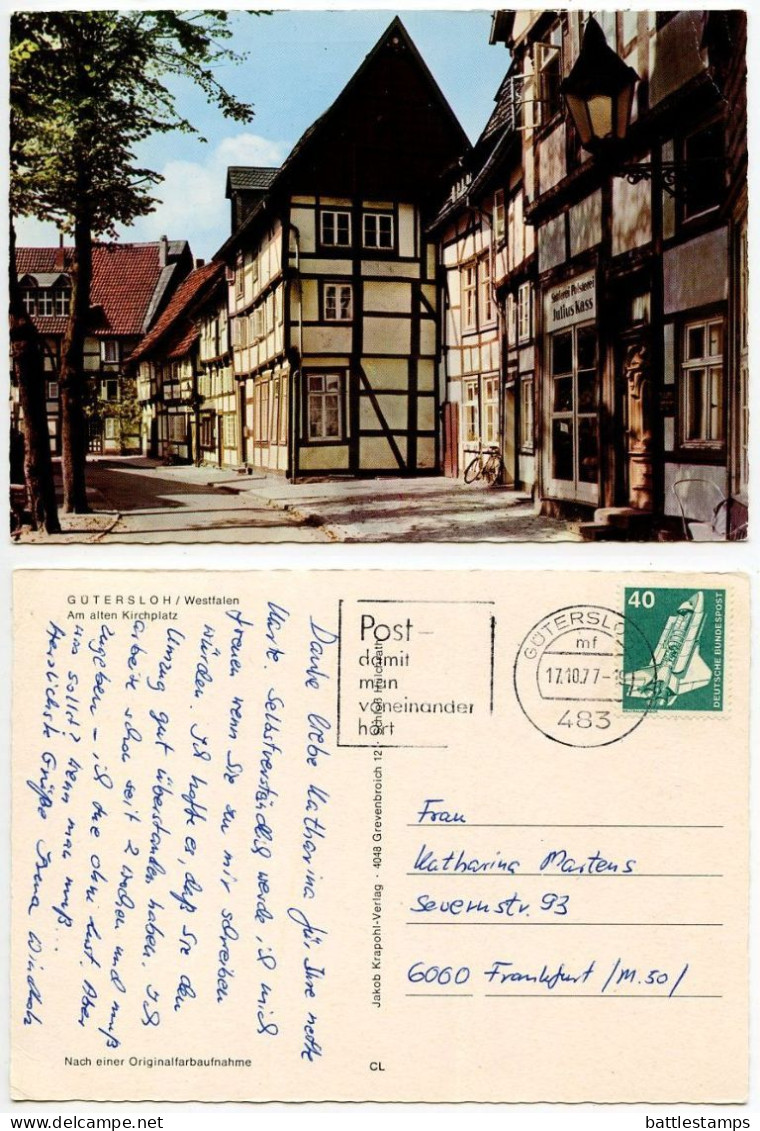 Sattlerei Polsterei
Julius Kass
GÜTERSLOH / Westfalen
Am alten Kirchplatz
Danke liebe Katharina für Ihre nette
Karte. Selbstverständlich werde ich mich
freuen wenn Sie zu mir schreiben
würden. Ich hoffe es, daß Sie den
Umzug gut überstanden haben. Ich
arbeite schon seit 2 Wochen und muß
zugeben – ich tue ohne Lust. Aber
was sollst? Wenn man muß...
Herzlichste Grüße Irena
Nach einer Originalfarbaufnahme
Jakob Krapohl-Verlag · 4048 Grevenbroich 12 · Schloß Hülchrath
CL
Post –
damit
man
voneinander
hört
GÜTERSLOH
mf
17.10.77-19
483
40
DEUTSCHE BUNDESPOST
Frau
Katharina Martens
Severnstr. 93
6000 Frankfurt /M.50/
battlestamps